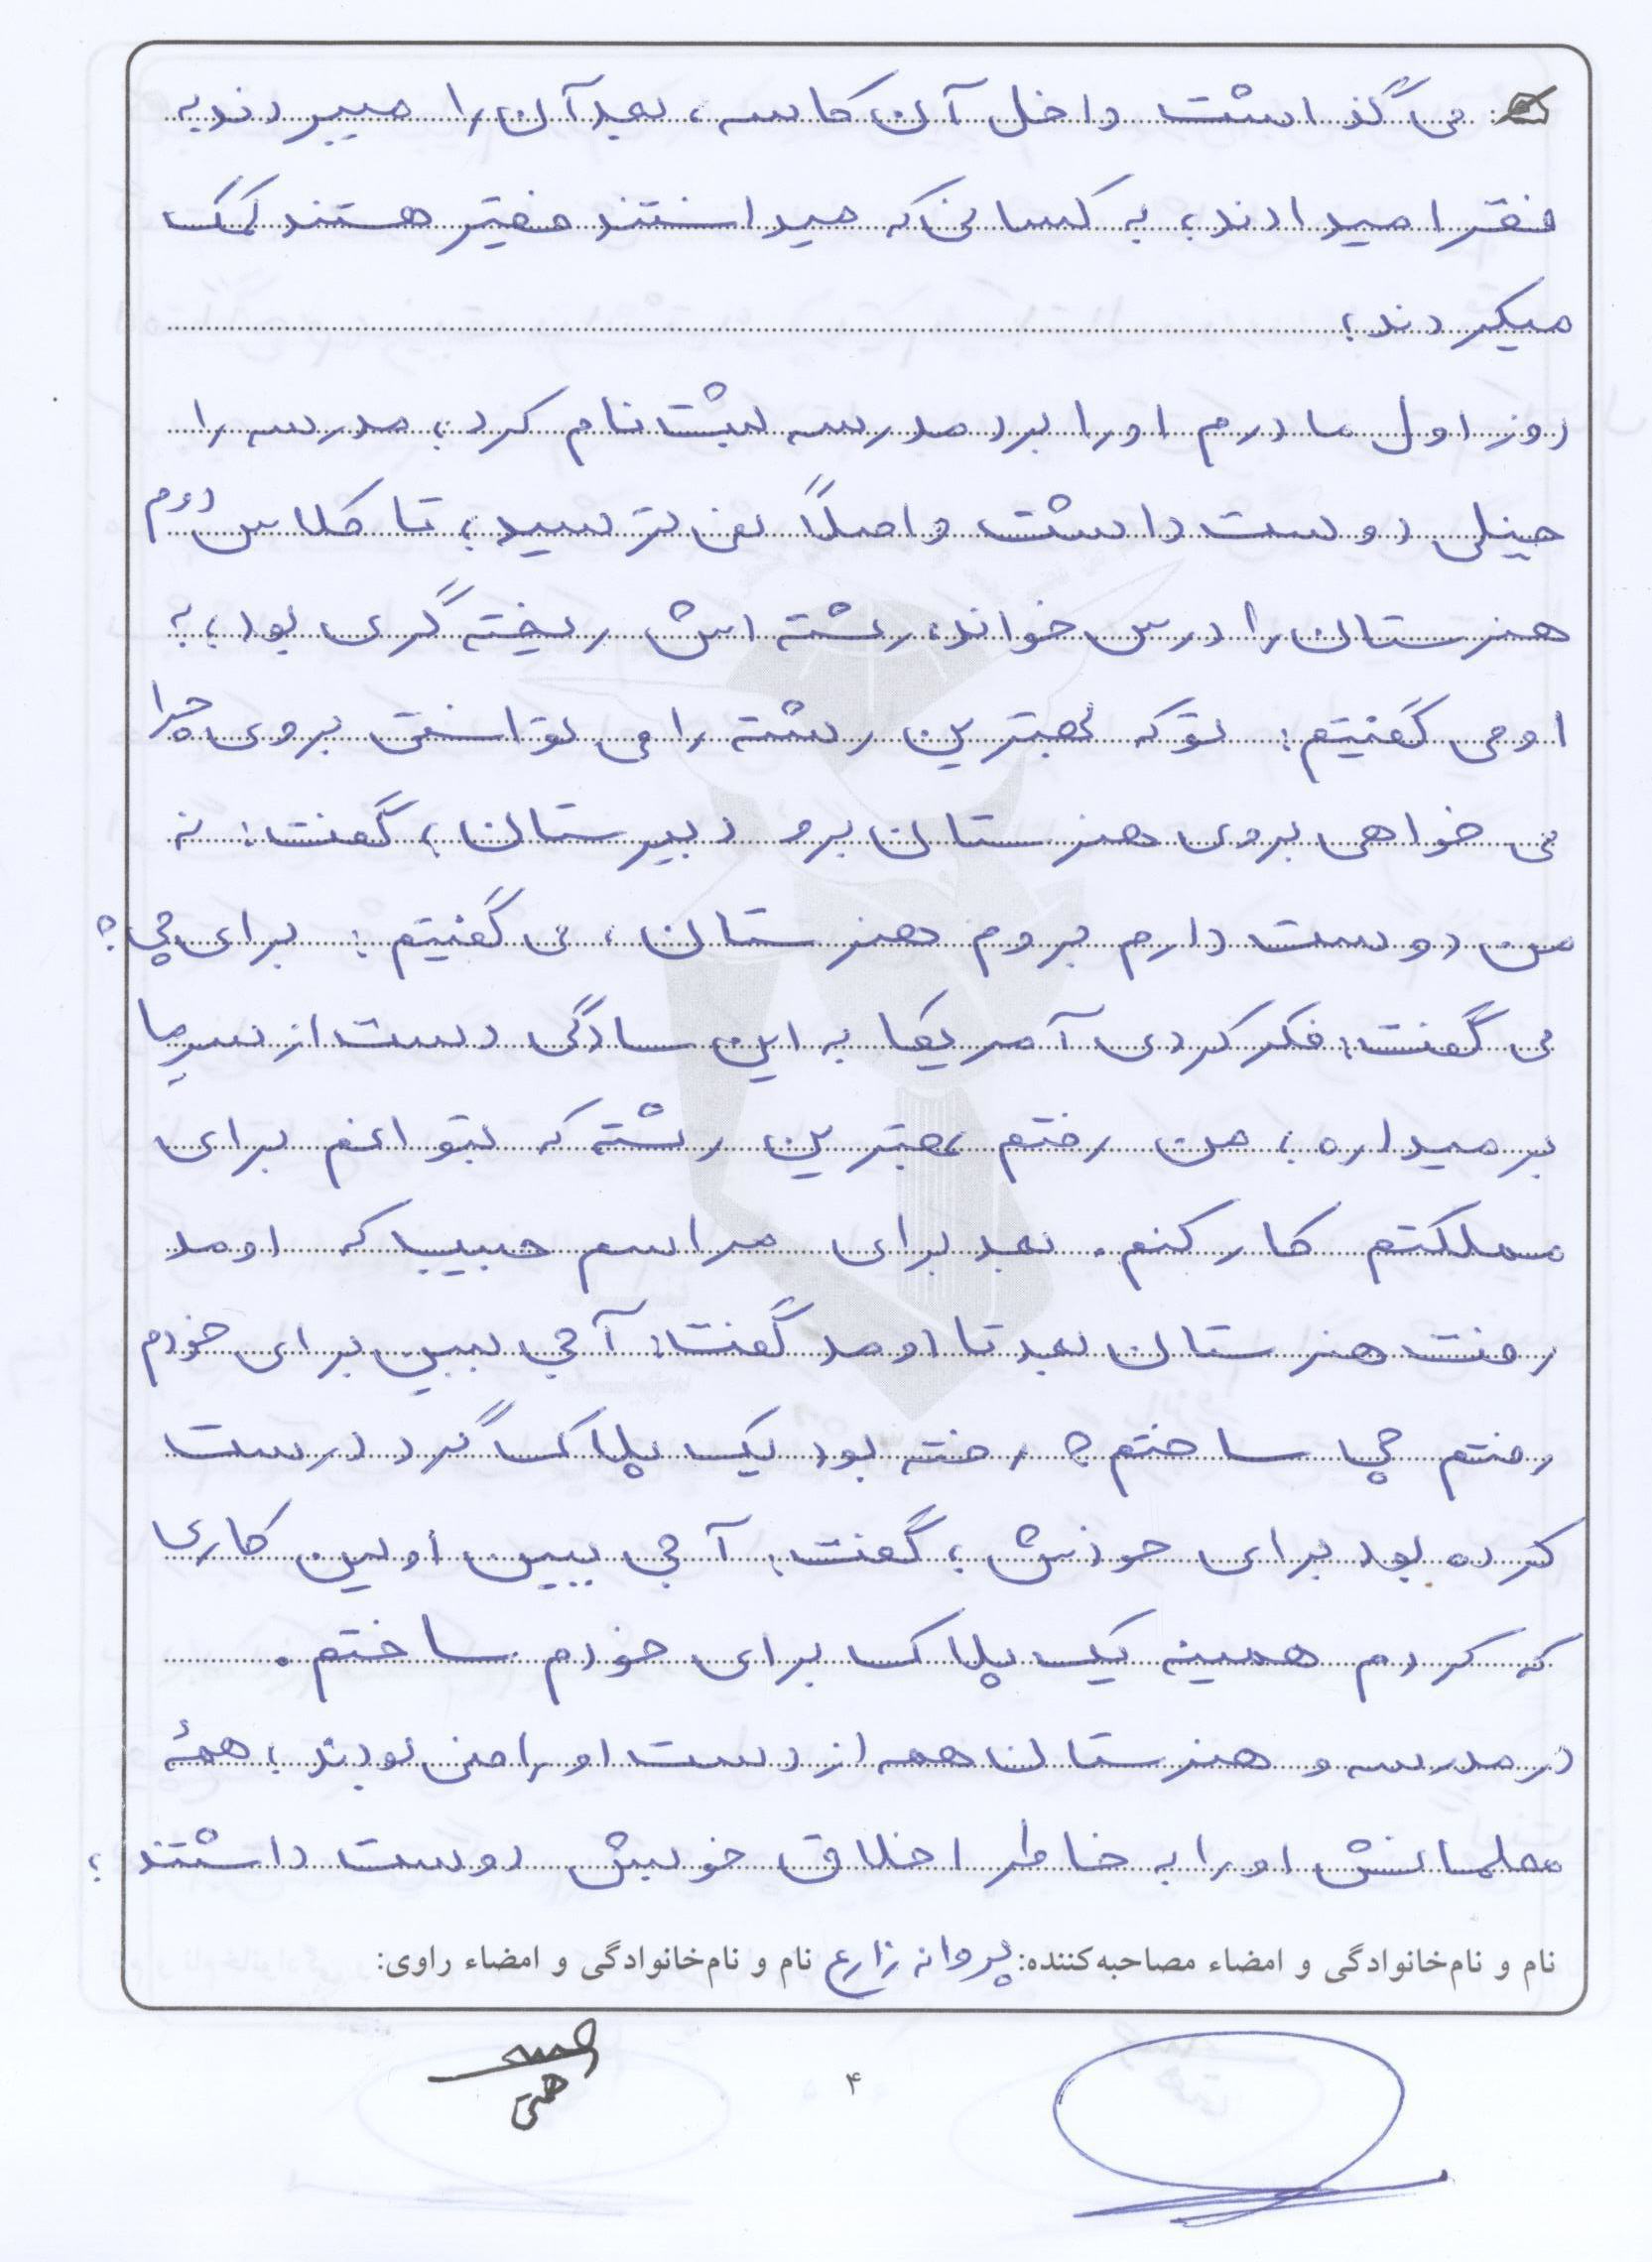 می گذاشت داخل آن کاسه، بعد آن را میبردند به
فقرا میدادند؛ به کسانی که میدانستند فقیر هستند کمک
میکردند؛
روز اول مادرم او را برد مدرسه ثبت نام کرد؛ مدرسه را
خیلی دوست داشت و اصلاً نمی ترسید؛ تا کلاس دوم
هنرستان را درس خواند، رشته اش ریخته گری بود؛ به
او می گفتیم: تو که بهترین رشته را می توانستی بروی چرا
می خواهی بروی هنرستان برو دبیرستان؛ گفت: نه
من دوست دارم بروم هنرستان، می گفتیم: برای چی؟
می گفت: فکر کردی آمریکا به این سادگی دست از سر ما
بر میداره؛ من رفتم بهترین رشته که بتوانم برای
مملکتم کار کنم. بعد برای مراسم حبیب که اومد
رفت هنرستان بعد تا اومد گفت: آجی ببین برای خودم
رفتم چی ساختم؟ رفته بود یک پلاک گرد درست
کرده بود برای خودش؛ گفت: آجی ببین اولین کاری
که کردم همینه یک پلاک برای خودم ساختم.
در مدرسه و هنرستان همه از دست او راضی بودند؛ همهٔ
معلمانش او را به خاطر اخلاق خوبش دوست داشتند؛
نام و نام‌خانوادگی و امضاء مصاحبه‌کننده: پروانه زارع نام و نام‌خانوادگی و امضاء راوی:
۴